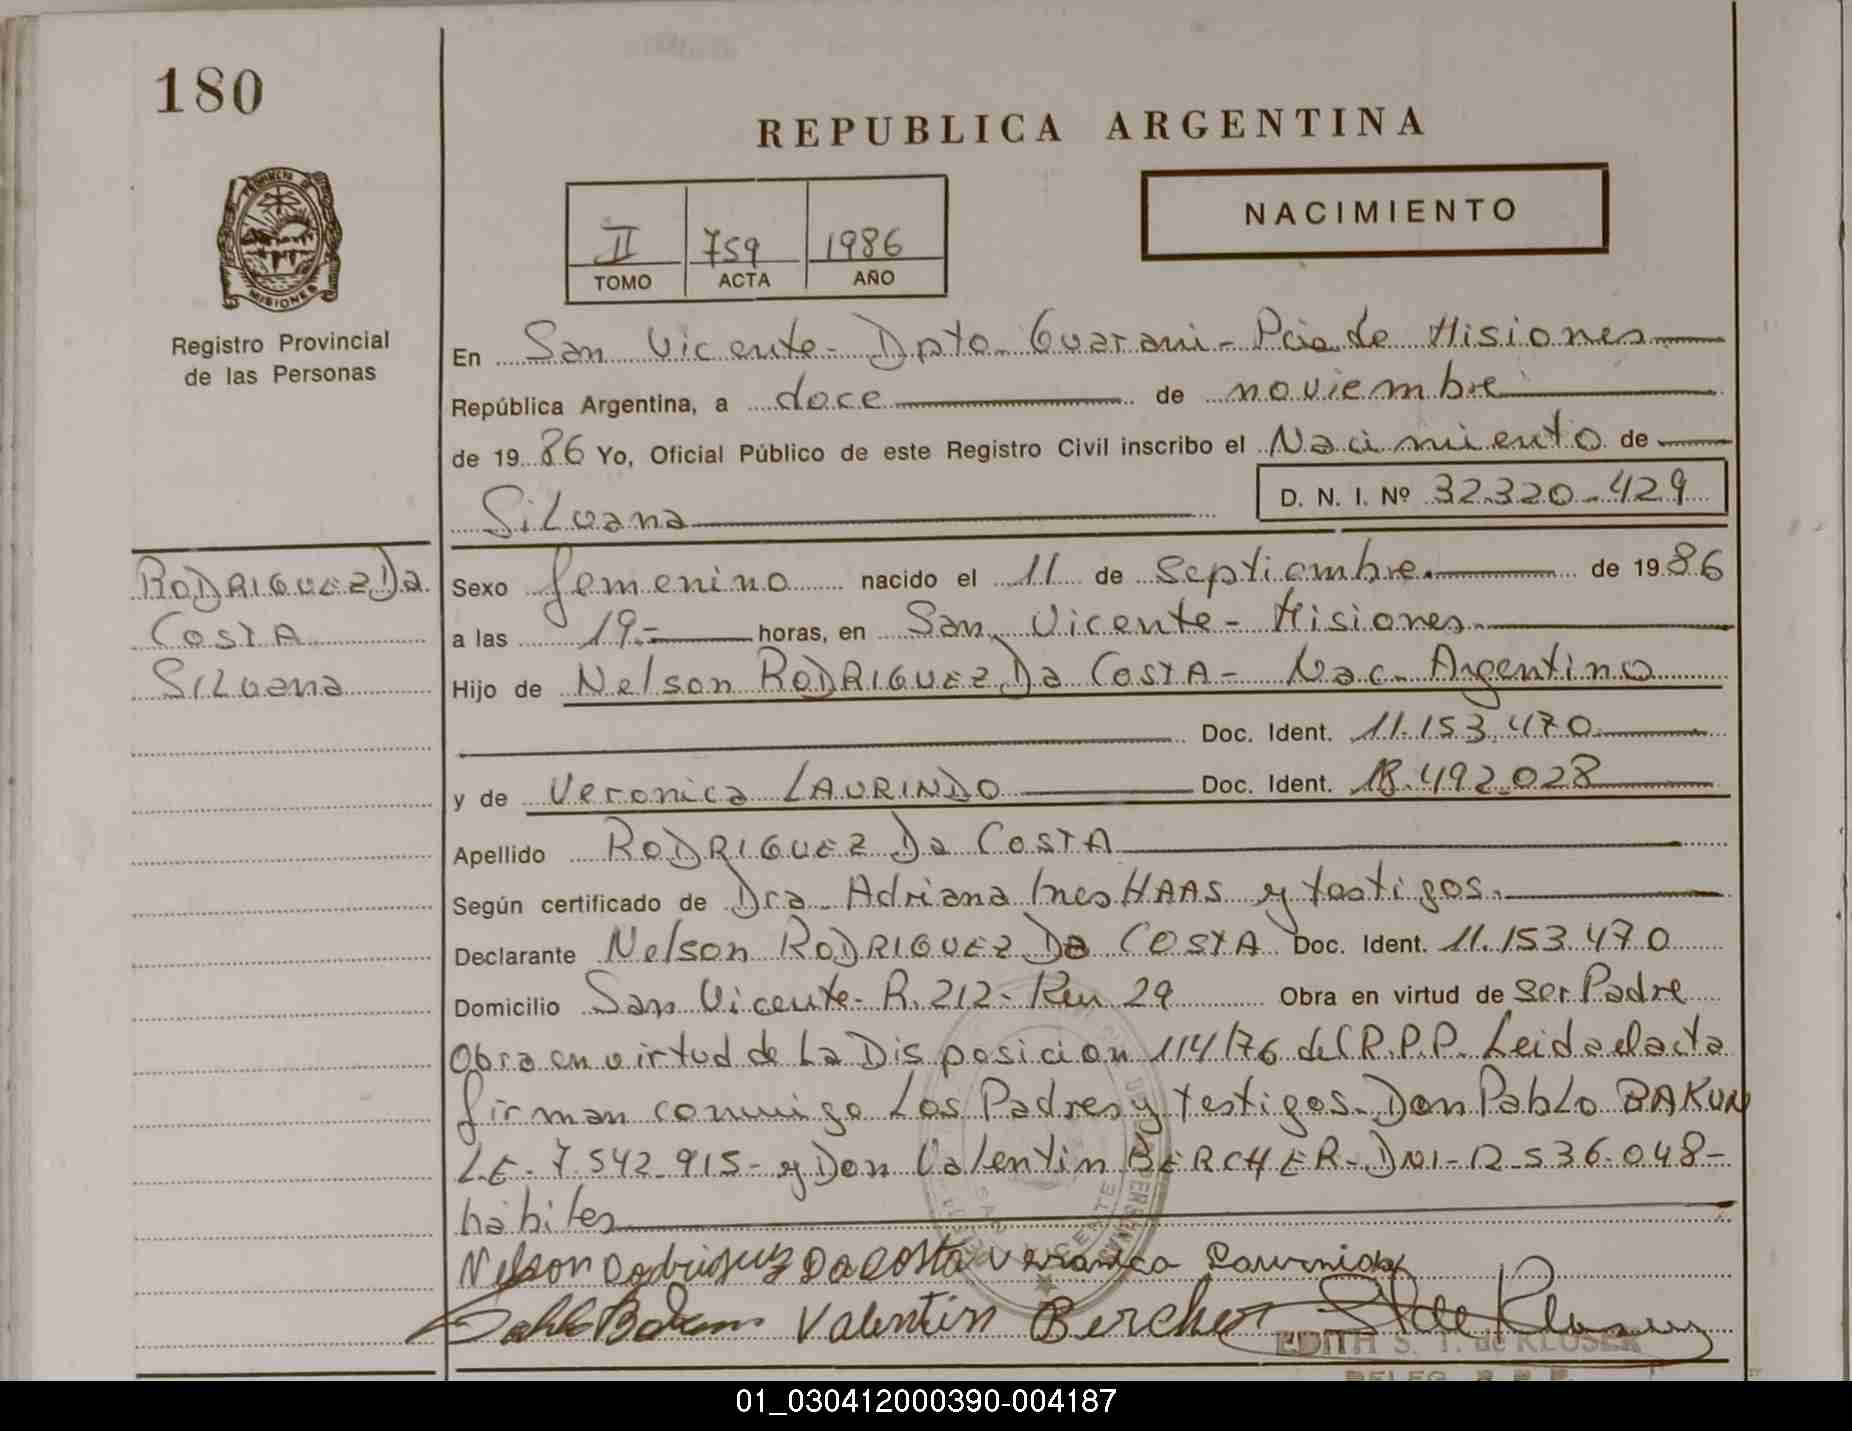 180
REPUBLICA ARGENTINA
NACIMIENTO
II 759 1986
TOMO ACTA AÑO
PROVINCIA DE
MISIONES
Registro Provincial
de las Personas
En San Vicente - Dpto Guarani - Pcia de Misiones
República Argentina, a doce de noviembre
de 1986 Yo, Oficial Público de este Registro Civil inscribo el Nacimiento de
Silvana D. N. I. Nº 32.320.429
RODRIGUEZ Da
COSTA
Silvana
Sexo femenino nacido el 11 de Septiembre de 1986
a las 19.- horas, en San Vicente - Misiones
Hijo de Nelson RODRIGUEZ Da COSTA - Nac. Argentino
Doc. Ident. 11.153.470
y de Veronica LAURINDO Doc. Ident. 18.492.028
Apellido RODRIGUEZ Da COSTA
Según certificado de Dra. Adriana Ines HAAS y testigos.
Declarante Nelson RODRIGUEZ Da COSTA Doc. Ident. 11.153.470
Domicilio San Vicente - R. 212 - Km 29 Obra en virtud de ser Padre
Obra en virtud de la Disposicion 114/76 del R.P.P. Leida el acta
firman conmigo los Padres y testigos. Don Pablo BAKUN
L.E. 7.542.915 - y Don Valentin BERCHER - DNI - 12.536.048 -
habiles
Nelson Rodriguez Da Costa Veronica Laurindo
Pablo Bakun Valentin Bercher
EDITH S. T. de KLOSER
01_030412000390-004187